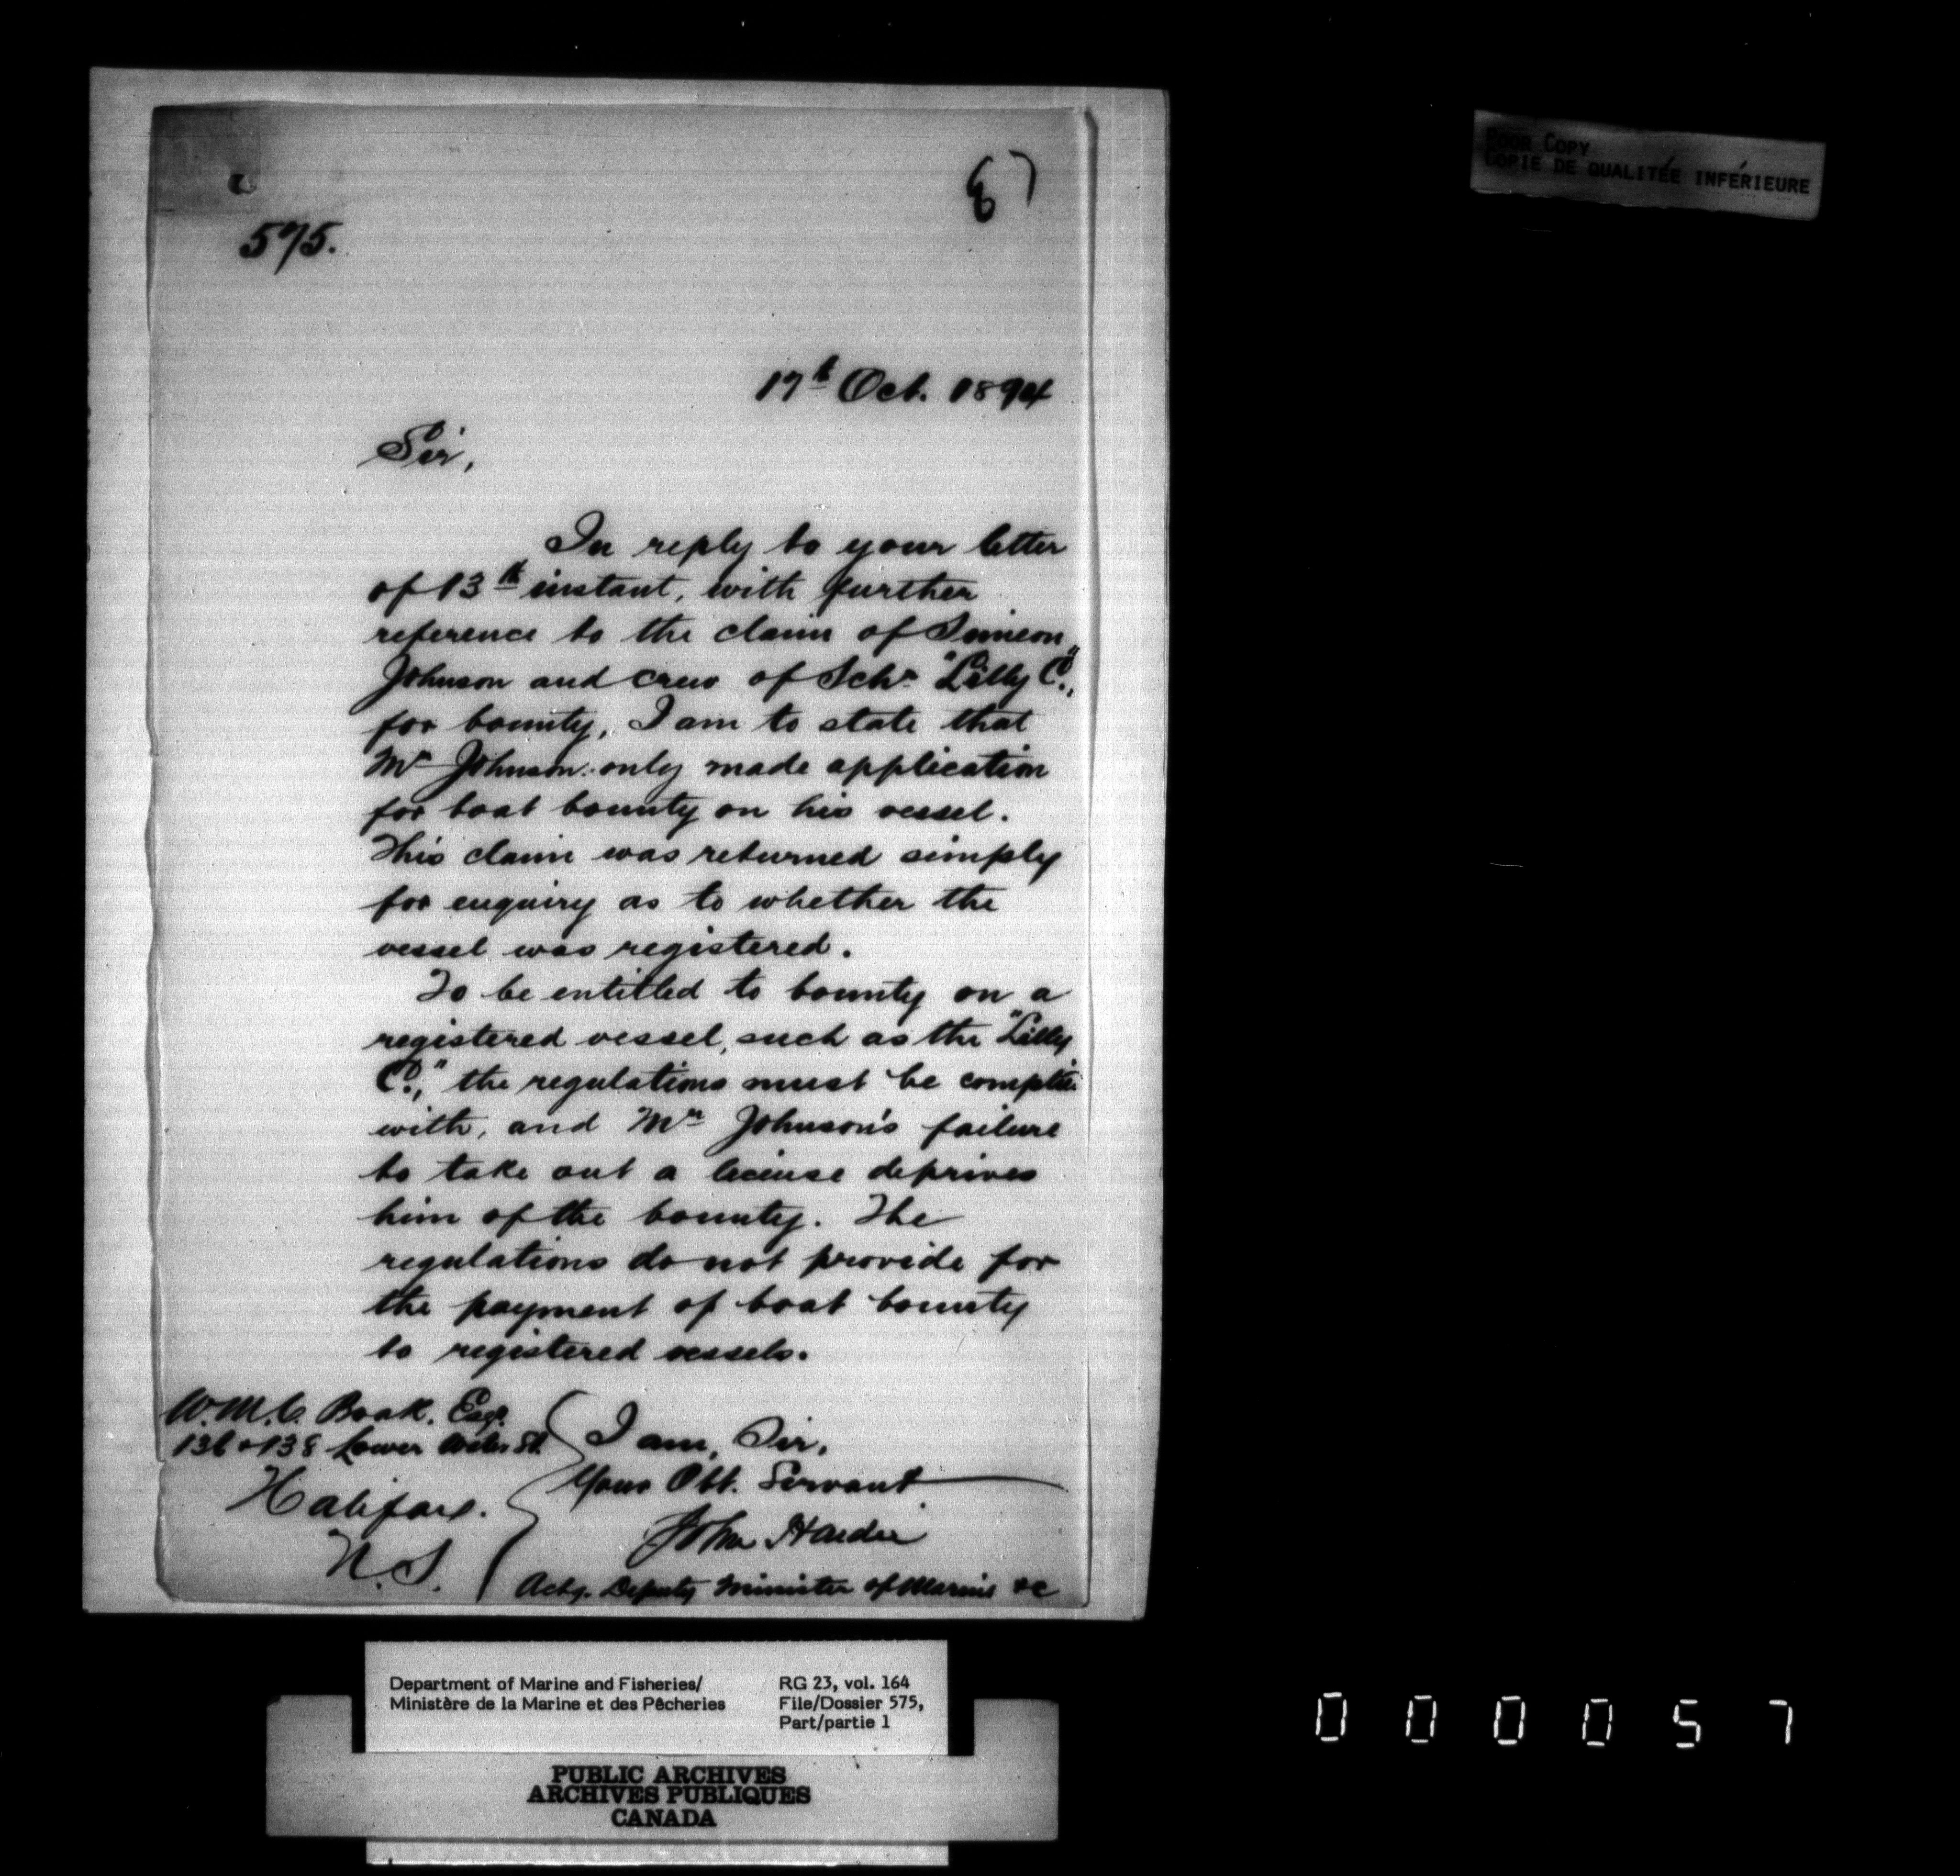 575.
67
17th Oct. 1894
Sir,
In reply to your letter
of 13th instant, with further
reference to the claim of Simeon
Johnson and crew of Schr "Lilly C.,"
for bounty, I am to state that
Mr Johnson only made application
for boat bounty on his vessel.
This claim was returned simply
for enquiry as to whether the
vessel was registered.
To be entitled to bounty on a
registered vessel, such as the "Lilly
C.," the regulations must be complied
with, and Mr Johnson's failure
to take out a license deprives
him of the bounty. The
regulations do not provide for
the payment of boat bounty
to registered vessels.
I am, Sir,
Your Obt. Servant
John Hardie
Actg. Deputy Minister of Marine &c
W.M.C. Boak, Esq.
136 & 138 Lower Water St.
Halifax.
N.S.
POOR COPY
COPIE DE QUALITÉE INFÉRIEURE
Department of Marine and Fisheries/
Ministère de la Marine et des Pêcheries
RG 23, vol. 164
File/Dossier 575,
Part/partie 1
PUBLIC ARCHIVES
ARCHIVES PUBLIQUES
CANADA
000057